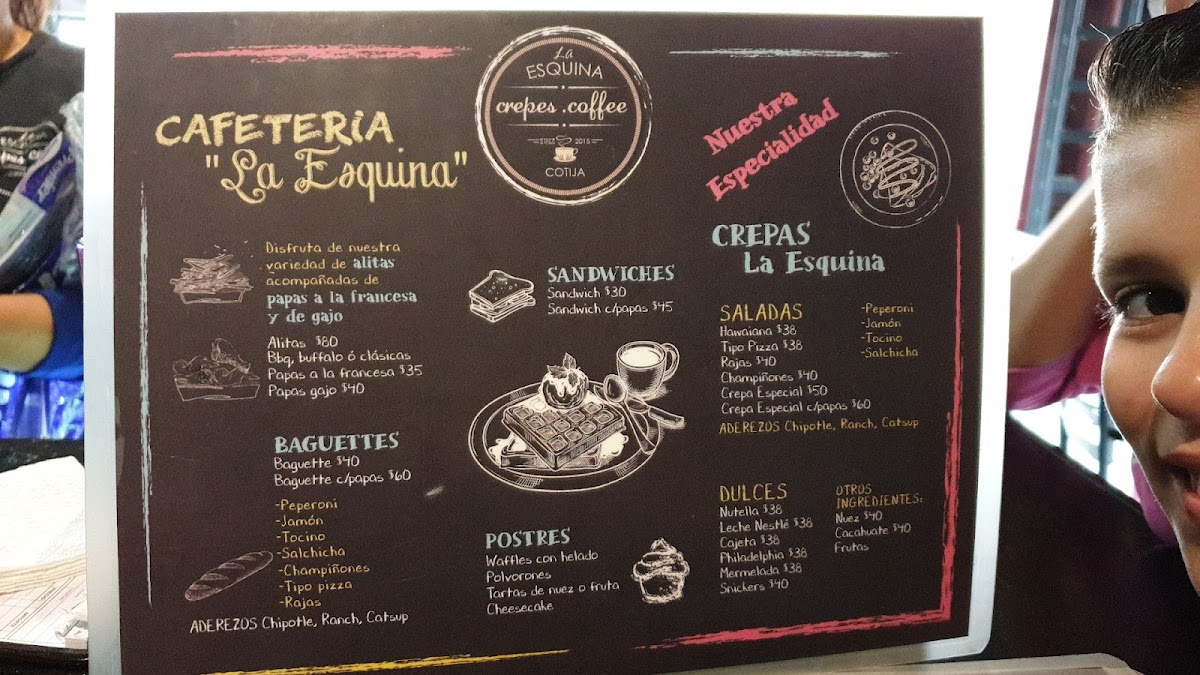 La
ESQUINA
crepes.coffee
SINCE 2015
COTIJA
CAFETERIA
"La Esquina"
Disfruta de nuestra
variedad de alitas
acompañadas de
papas a la francesa
y de gajo
Alitas $80
Bbq, buffalo ó clásicas
Papas a la francesa $35
Papas gajo $40
BAGUETTES
Baguette $40
Baguette c/papas $60
-Peperoni
-Jamón
-Tocino
-Salchicha
-Champiñones
-Tipo pizza
-Rajas
ADEREZOS Chipotle, Ranch, Catsup
SANDWICHES
Sandwich $30
Sandwich c/papas $45
POSTRES
Waffles con helado
Polvorones
Tartas de nuez o fruta
Cheesecake
Nuestra
Especialidad
CREPAS
La Esquina
SALADAS
Hawaiana $38
Tipo Pizza $38
Rajas $40
Champiñones $40
Crepa Especial $50
Crepa Especial c/papas $60
-Peperoni
-Jamón
-Tocino
-Salchicha
ADEREZOS Chipotle, Ranch, Catsup
DULCES
Nutella $38
Leche Nestlé $38
Cajeta $38
Philadelphia $38
Mermelada $38
Snickers $40
OTROS
INGREDIENTES:
Nuez $40
Cacahuate $40
Frutas